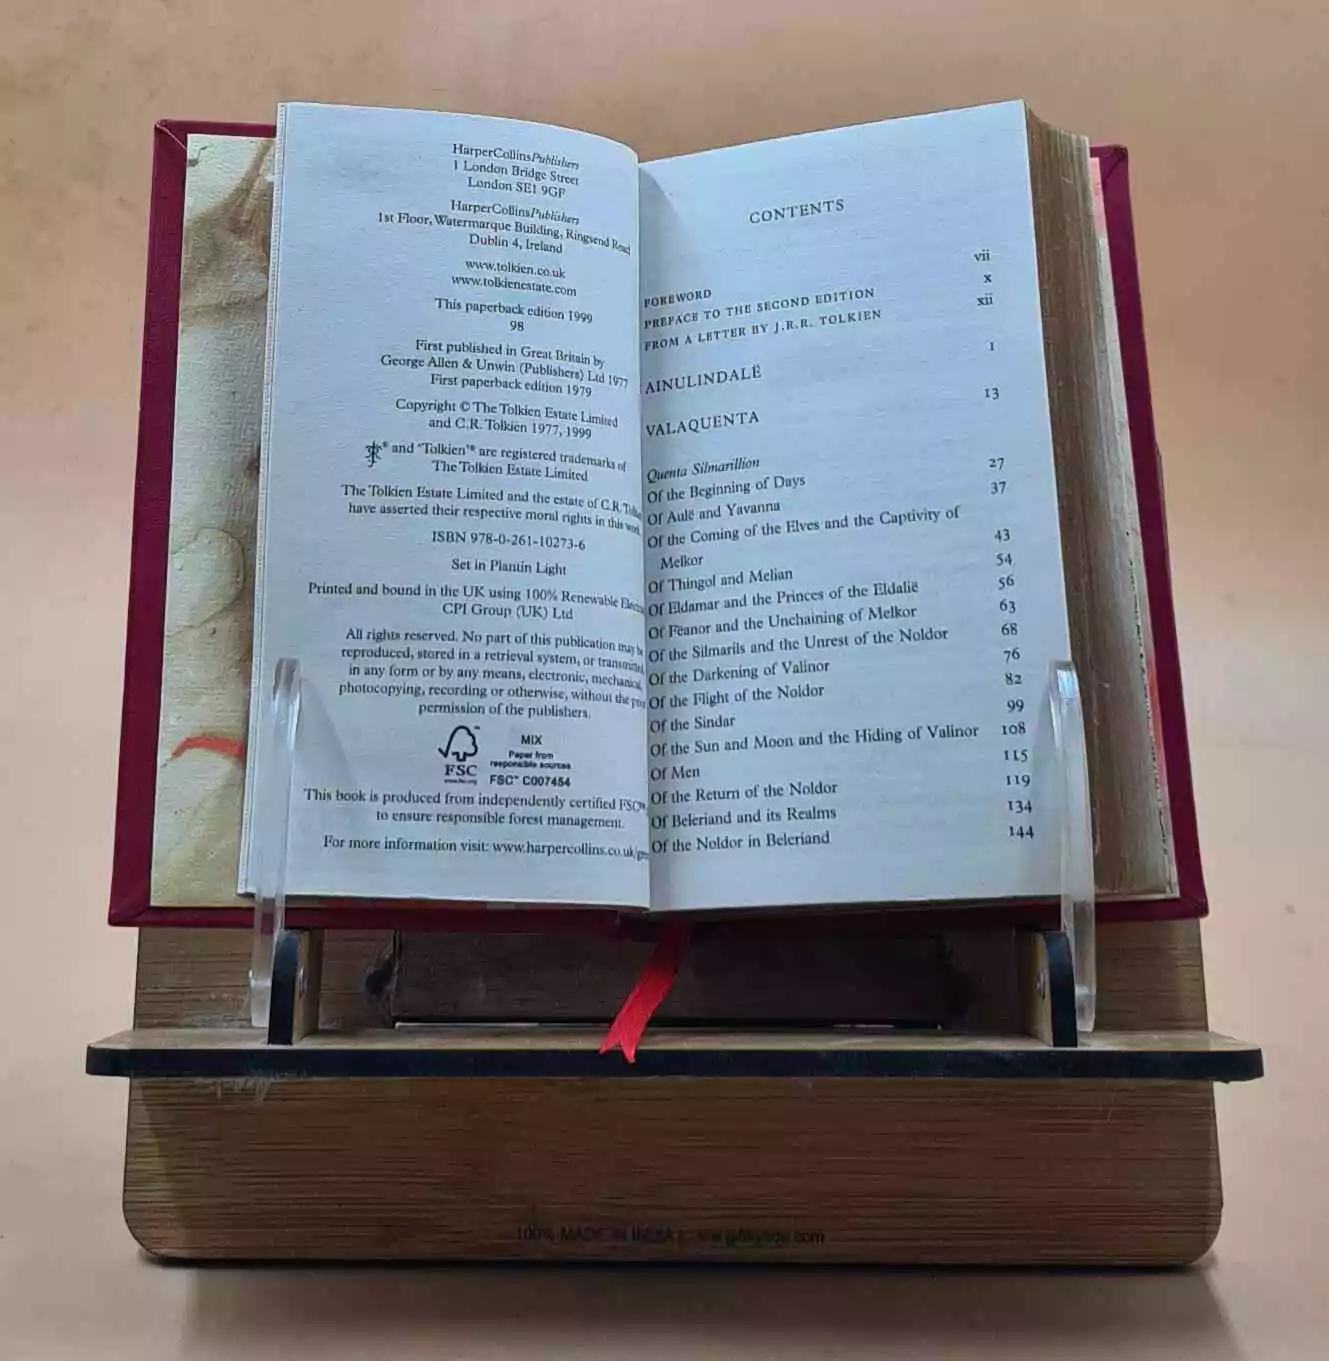 HarperCollinsPublishers
1 London Bridge Street
London SE1 9GF
HarperCollinsPublishers
1st Floor, Watermarque Building, Ringsend Road
Dublin 4, Ireland
www.tolkien.co.uk
www.tolkienestate.com
This paperback edition 1999
98
First published in Great Britain by
George Allen & Unwin (Publishers) Ltd 1977
First paperback edition 1979
Copyright © The Tolkien Estate Limited
and C.R. Tolkien 1977, 1999
® and ‘Tolkien’® are registered trademarks of
The Tolkien Estate Limited
The Tolkien Estate Limited and the estate of C.R.
have asserted their respective moral rights in this work
ISBN 978-0-261-10273-6
Set in Plantin Light
Printed and bound in the UK using 100% Renewable
CPI Group (UK) Ltd
All rights reserved. No part of this publication may be
reproduced, stored in a retrieval system, or transmitted,
in any form or by any means, electronic, mechanical,
photocopying, recording or otherwise, without the
permission of the publishers.
FSC
MIX
Paper from
responsible sources
FSC™ C007454
This book is produced from independently certified FSC™
to ensure responsible forest management.
For more information visit: www.harpercollins.co.uk/
CONTENTS
FOREWORD vii
PREFACE TO THE SECOND EDITION x
FROM A LETTER BY J.R.R. TOLKIEN xii
AINULINDALË 1
VALAQUENTA 13
Quenta Silmarillion
Of the Beginning of Days 27
Of Aulë and Yavanna 37
Of the Coming of the Elves and the Captivity of
Melkor 43
Of Thingol and Melian 54
Of Eldamar and the Princes of the Eldalië 56
Of Fëanor and the Unchaining of Melkor 63
Of the Silmarils and the Unrest of the Noldor 68
Of the Darkening of Valinor 76
Of the Flight of the Noldor 82
Of the Sindar 99
Of the Sun and Moon and the Hiding of Valinor 108
Of Men 115
Of the Return of the Noldor 119
Of Beleriand and its Realms 134
Of the Noldor in Beleriand 144
100% MADE IN INDIA